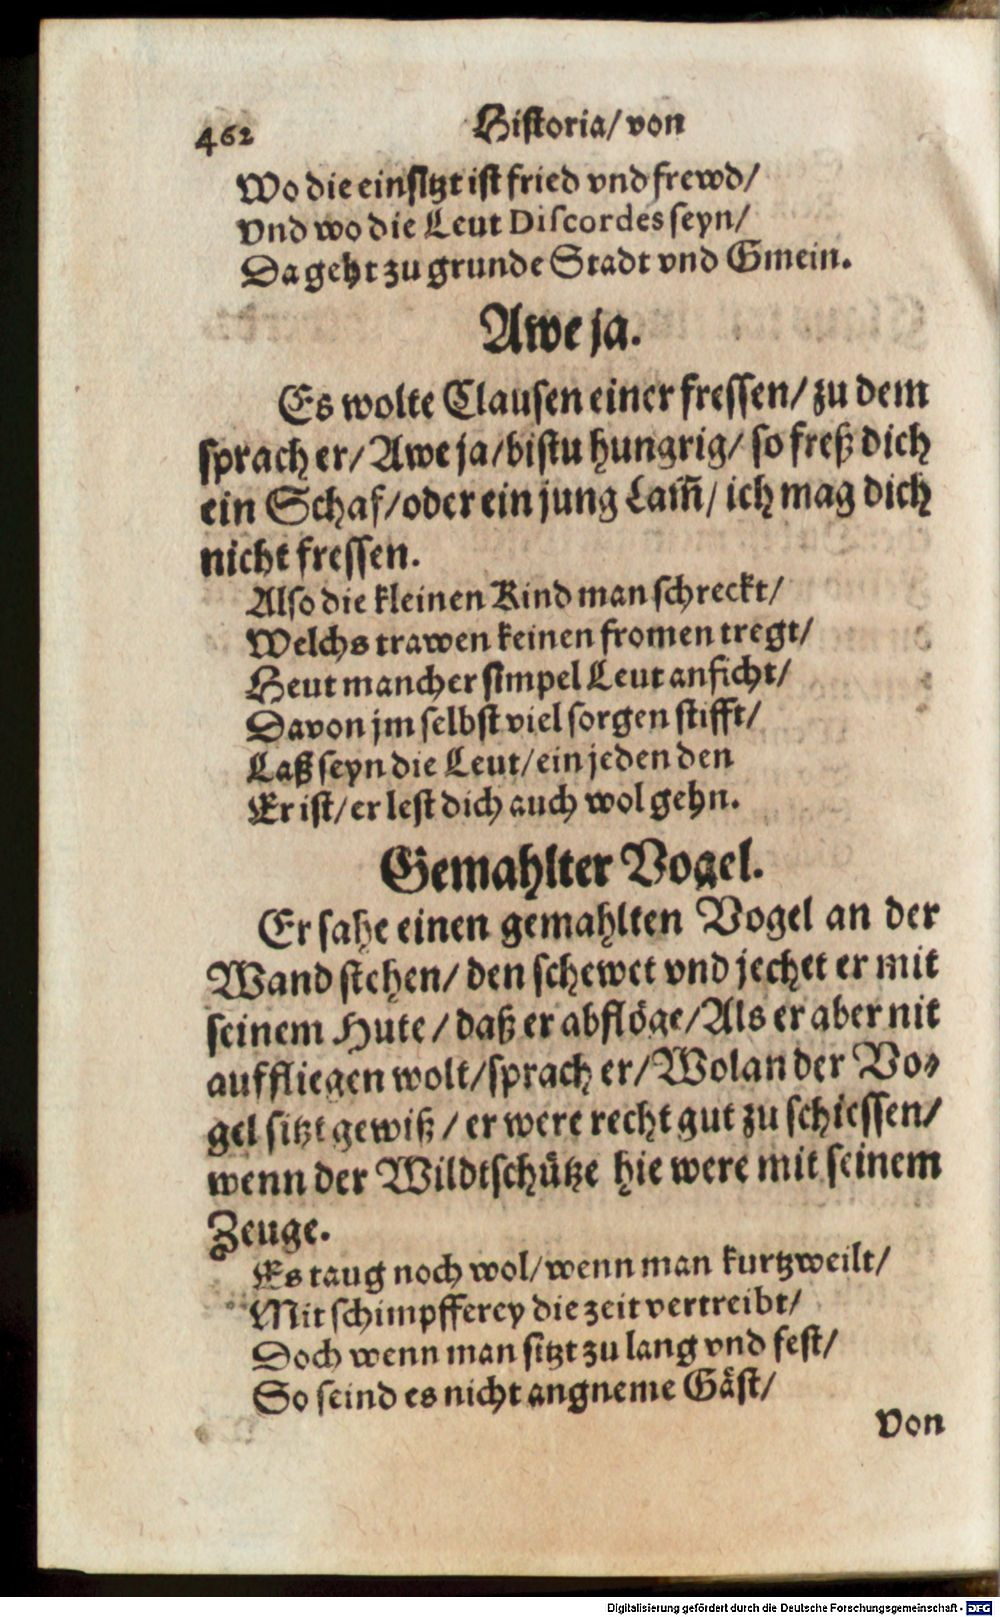 462 Historia/ von
Wo die einsitzt ist fried vnd frewd/
Vnd wo die Leut Discordes seyn/
Da geht zu grunde Stadt vnd Gmein.
Awe ja.
Es wolte Clausen einer fressen/ zu dem
sprach er/ Awe ja/ bistu hungrig/ so freß dich
ein Schaf/ oder ein jung Lam̃/ ich mag dich
nicht fressen.
Also die kleinen Kind man schreckt/
Welchs trawen keinen fromen tregt/
Heut mancher simpel Leut anficht/
Davon jm selbst viel sorgen stifft/
Laß seyn die Leut/ ein jeden den
Er ist/ er lest dich auch wol gehn.
Gemahlter Vogel.
Er sahe einen gemahlten Vogel an der
Wand stehen/ den schewet vnd jechet er mit
seinem Hute/ daß er abflöge/ Als er aber nit
auffliegen wolt/ sprach er/ Wolan der Vo⸗
gel sitzt gewiß/ er were recht gut zu schiessen/
wenn der Wildtschütze hie were mit seinem
Zeuge.
Es taug noch wol/ wenn man kurtzweilt/
Mit schimpfferey die zeit vertreibt/
Doch wenn man sitzt zu lang vnd fest/
So seind es nicht angneme Gäst/
Von
Digitalisierung gefördert durch die Deutsche Forschungsgemeinschaft - DFG